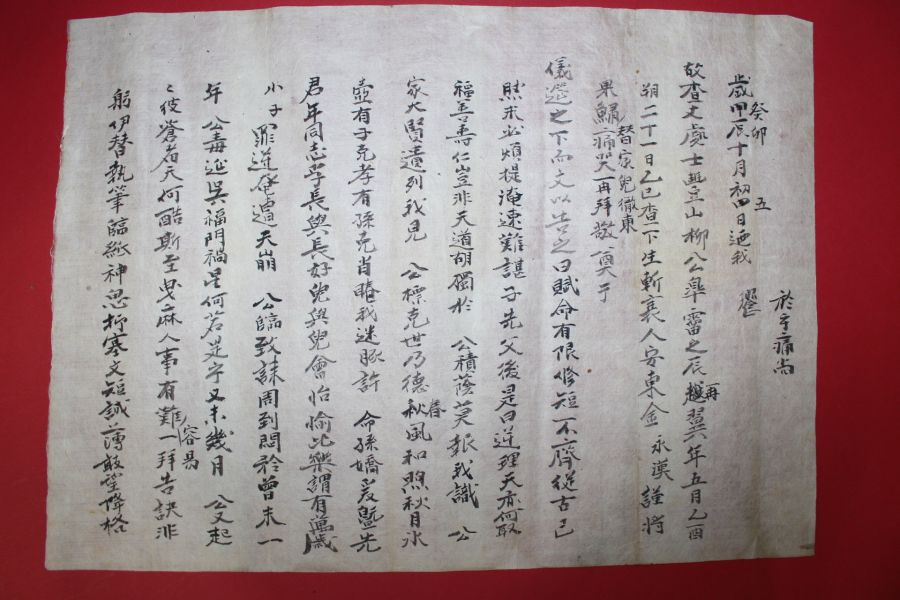 於乎痛尙
癸卯 五
歲甲辰十月初四日迺我
故査丈處士豊山柳公皐霤之辰越再翌六年五月乙酉
朔二十一日乙巳査下生斬衰人安東金永漢謹將
替家兒徹東
果鱐痛哭再拜敬奠于
儀筵之下而文以告之曰賦命有限修短不齊從古已
然未必煩提淹速難諶子先父後是曰逆理天亦何取
福善壽仁豈非天道胡獨於 公積蔭莫報我識 公
家大賢遺列我見 公標克世乃德春風和煦秋月氷
壺有子克孝有孫克肖睠我迷豚許 命孫嬌爰曁先
君年同志孚長與長好兒與兒會怡愉比樂謂有萬歲
小子罪逆奄遭天崩 公臨致誄周到悶矜曾未一
年 公毒延吳福門禍是何若是乎又未幾月 公又起
彼蒼者天何酷斯至曳麻人事有難容易一拜告訣非
躬伊替執筆臨紙神思抑塞文短誠薄敢望降格